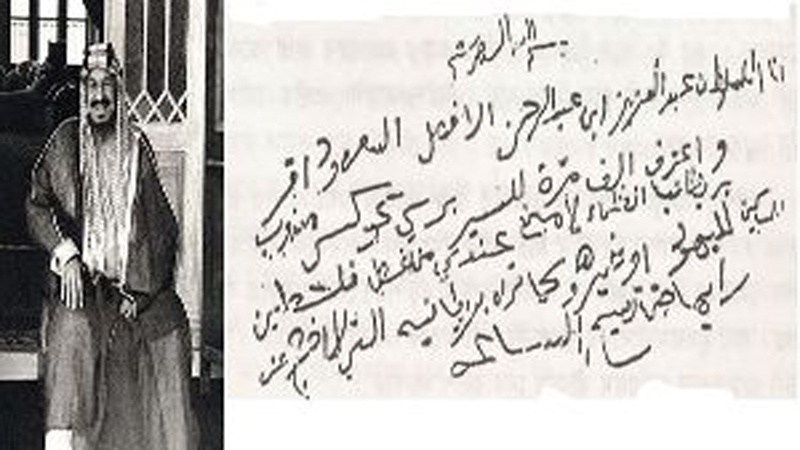 بسم الله الرحمن الرحيم
انا السلطان عبد العزيز ابن عبد الرحمن الافصل السعود اقر
و اعترف الف مرة للسير برسي كوكس مندوب
بريطانيا العظماء لا مانع عندي من
المساكين لليهود او غيرهم بريطانيه التي لا اخرج عن
رايها حتى تصيح الساعه